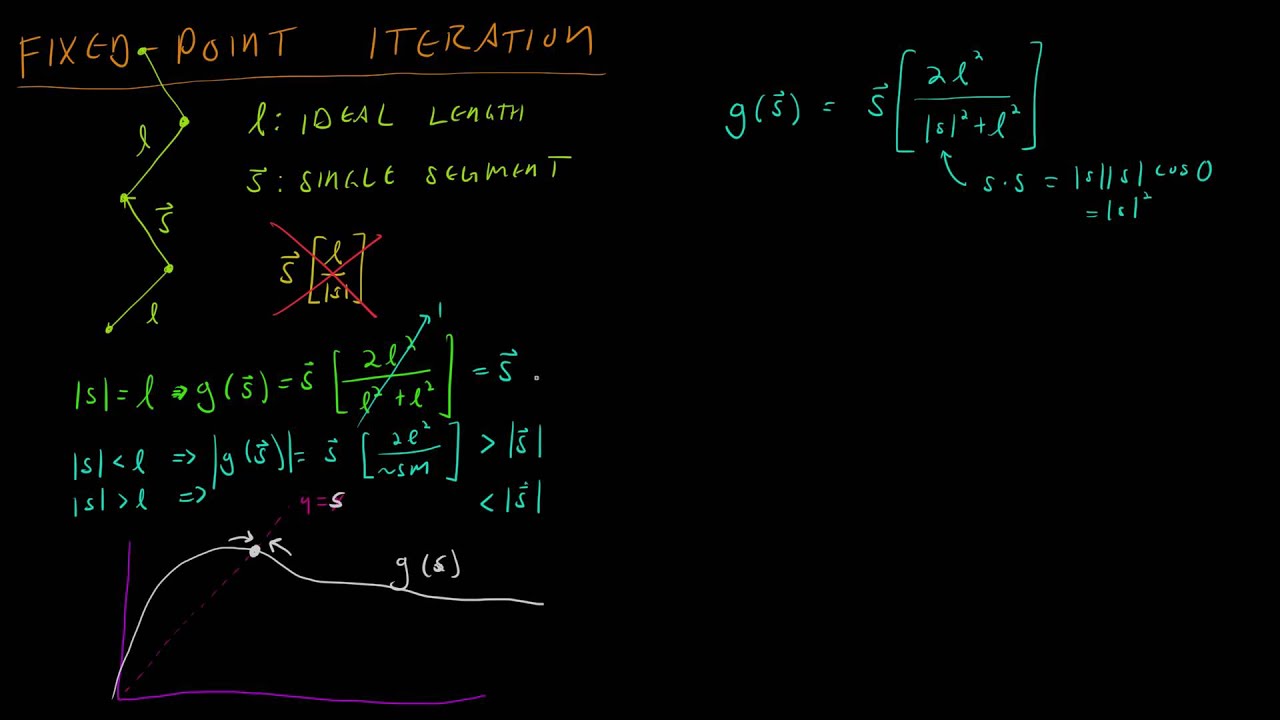 FIXED-POINT ITERATION
l: IDEAL LENGTH
s⃗: SINGLE SEGMENT
l
s⃗
l
s⃗ [l/|s|]
|s| = l ⇒ g(s⃗) = s⃗ [2l²/(l² + l²)] = s⃗ .
1
|s| < l ⇒ |g(s⃗)| = s⃗ [2l²/~sm] > |s⃗|
|s| > l ⇒ < |s⃗|
y = s
g(s)
g(s⃗) = s⃗ [2l²/(|s|² + l²)]
s·s = |s||s| cos 0
= |s|²